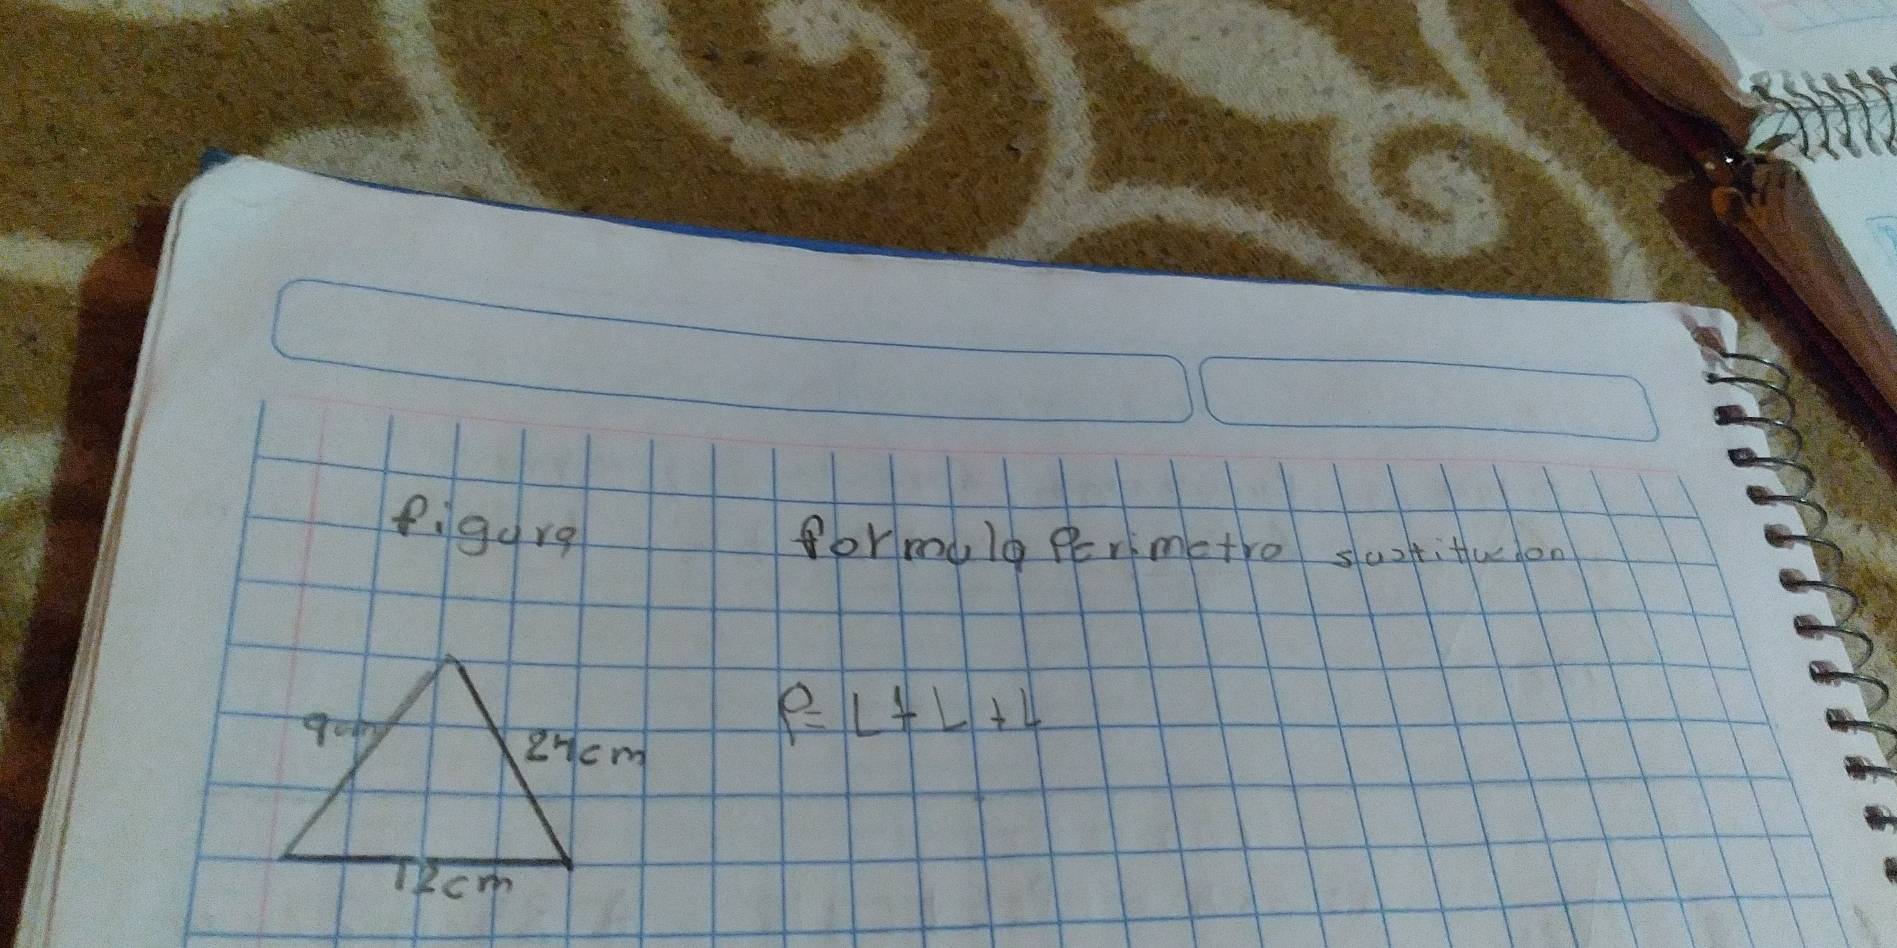 figura formula Perimetro sustitucion
P= L+L+L
9cm
24cm
12cm